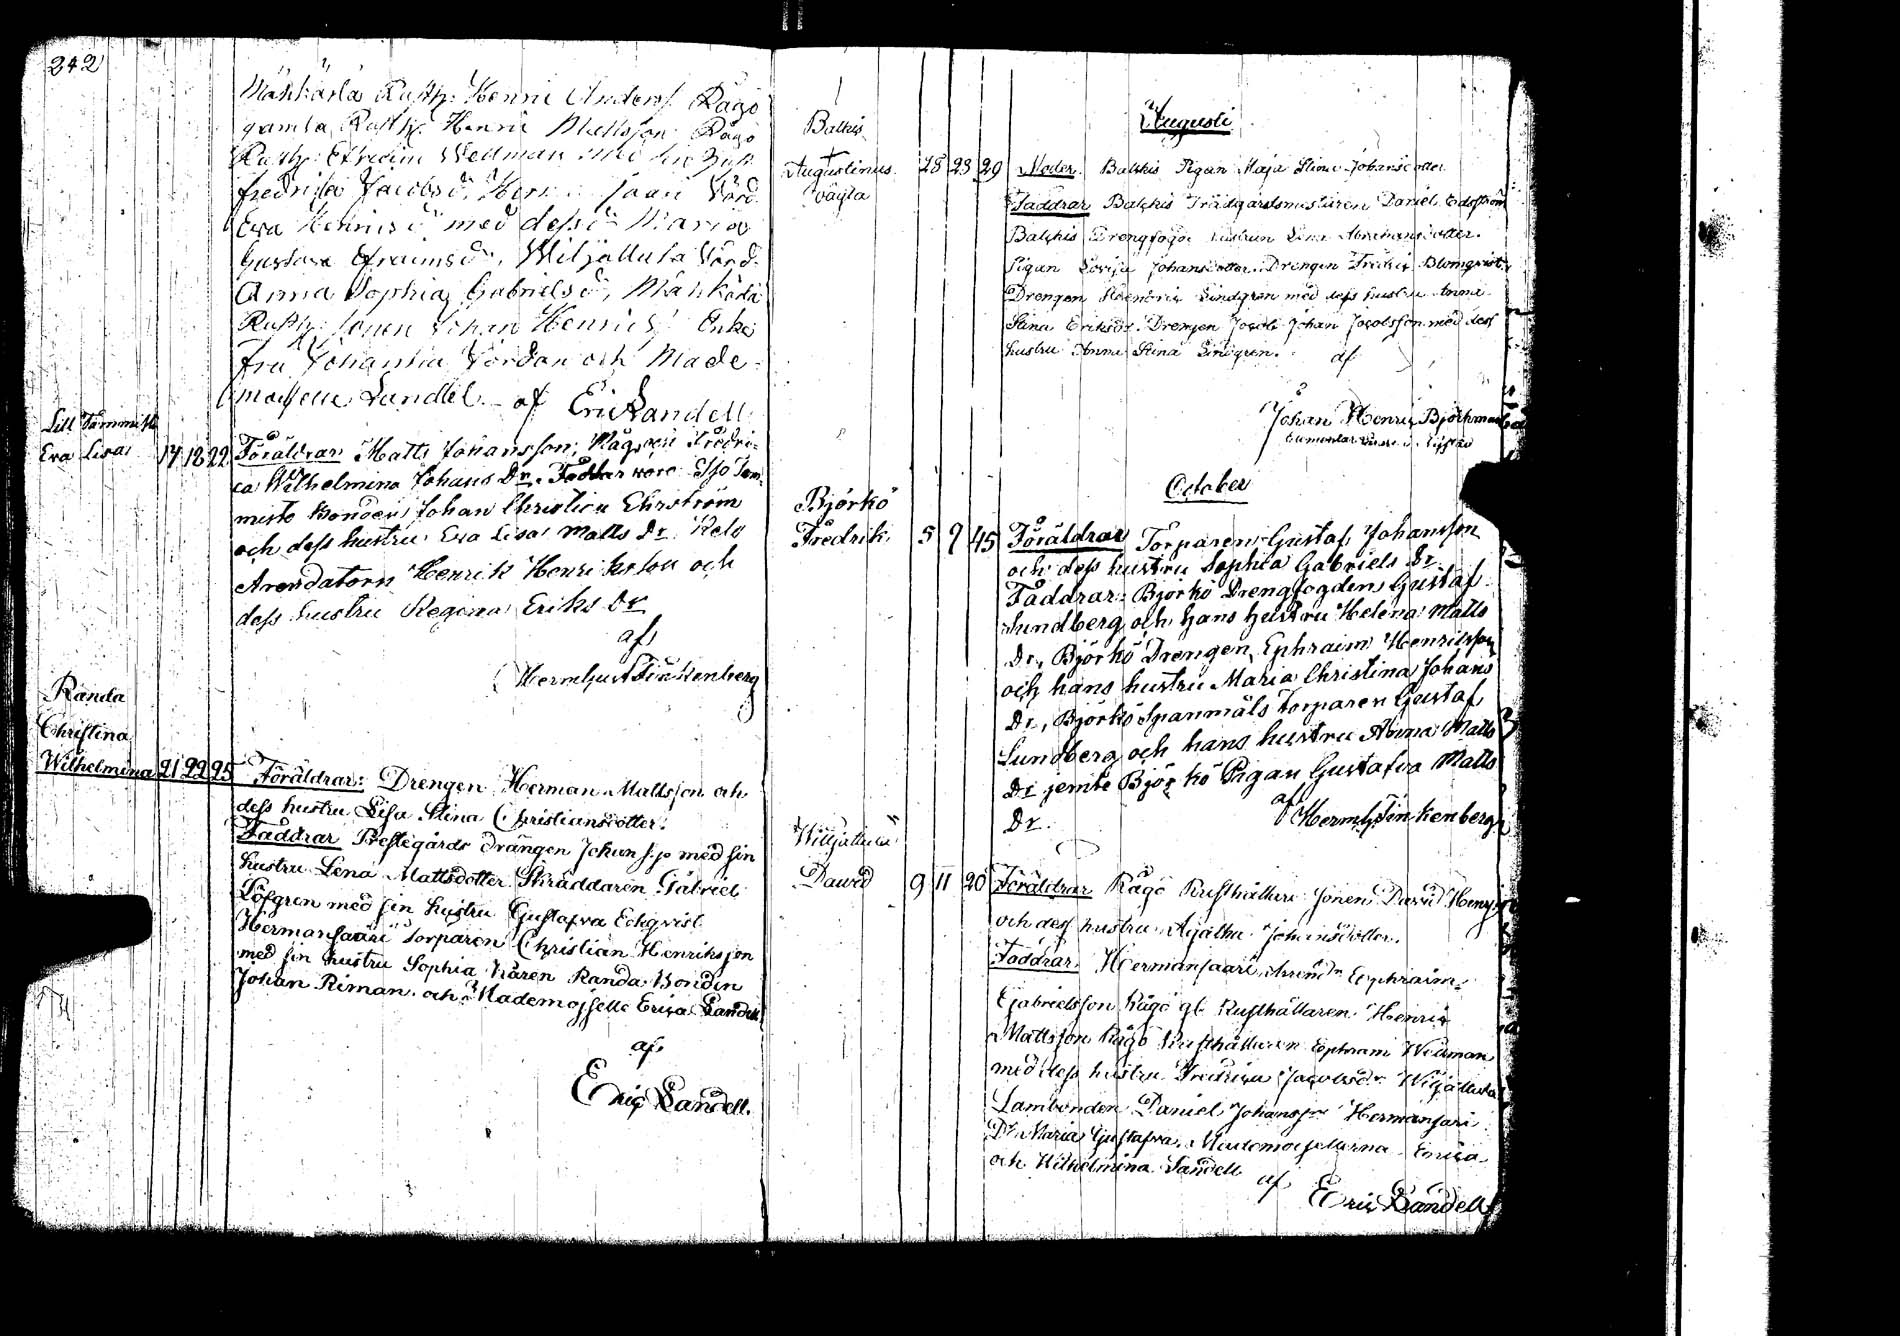 242
Mänkärla Rusth: Henric Anders: Rågö
gamla Rusth: Henric Mattsson Rågö
Rusth: Efreim Wedman med
fredrika Jacobsd.
Eva Henricsd med dess Maria
Gustava Efraimsd, Wiljallula
Anna Sophia Gabrielsd, Mänkärla
Rusth: Johan Henrics: Enke
fru Johanna och Made-
moiselle Sandell af Eric Sandell
Lill Tämmisto
Eva Lisa 17 18 22 Föräldrar Matts Johansson, Måg och Fredri-
ca Wilhelmina Johans Dr. Faddrar woro
misto Bonden Johan Christian Ehrström
och dess hustru Eva Lisa Matts Dr
Arendatorn Henrik Henriksson och
dess hustru Regina Eriks Dr
af
Herm Gust Finkenberg
Randa
Christina
Wilhelmina 21 22 25 Föräldrar: Drengen Herman Mattsson och
dess hustru Lisa Stina Christiansdotter.
Faddrar Prestegårds Drängen Johans:s: med sin
hustru Lena Mattsdotter Skräddaren Gabriel
Löfgren med sin hustru Gustafva Eckqvist
Hermansaari Torparen Christian Henriksson
med sin hustru Sophia Randa Bonden
Johan Riman och Mademoiselle Erica Sandell
af
Eric Sandell.
Augusti
Balkis
Augustinus 28 23 29 Moder. Balkis Pigan Maja Stina Johansdotter
oägta
Faddrar Balkis Trädgårdsmästaren Daniel Edsström
Balkis Drengfogde hustrun Lena Abrahamsdotter.
Pigan Lovisa Johansdotter. Drengen Fredric Blomqvist.
Drengen Hendric Lindgren med dess hustru Anna
Stina Eriksdr. Drengen Jacob Johan Jacobsson med dess
hustru Anna Stina Lindgren. af
Johan Henric Björkman
October
Björkö
Fredrik 5 7 45 Föräldrar Torparen Gustaf Johansson
och dess hustru Sophia Gabriels Dr.
Faddrar: Björkö Drengfogden Gustaf
Lundberg och hans hustru Helena Matts
Dr, Björkö Drengen Ephraim Henriksson
och hans hustru Maria Christina Johans
Dr, Björkö Spanmåls torparen Gustaf
Sundberg och hans hustru Anna Matts
Dr jemte Björkö Pigan Gustafva Matts
Dr. af Herm G Finkenberg
Wiljallula
David 9 11 20 Föräldrar Rågö Rusthållare Sonen David Henrs:
och dess hustru Agatha Johansdotter.
Faddrar. Hermansaari Arendr. Ephraim
Gabrielsson Rågö gl. Rusthållaren Henric
Mattsson Rågö Rusthållaren Ephraim Widman
med dess hustru Fredrica Jacobsdr Wiljallula
Lambonden Daniel Johansson Hermansari
Dr Maria Gustafva. Mademoisellerna Erica
och Wilhelmina Sandell af
Eric Sandell